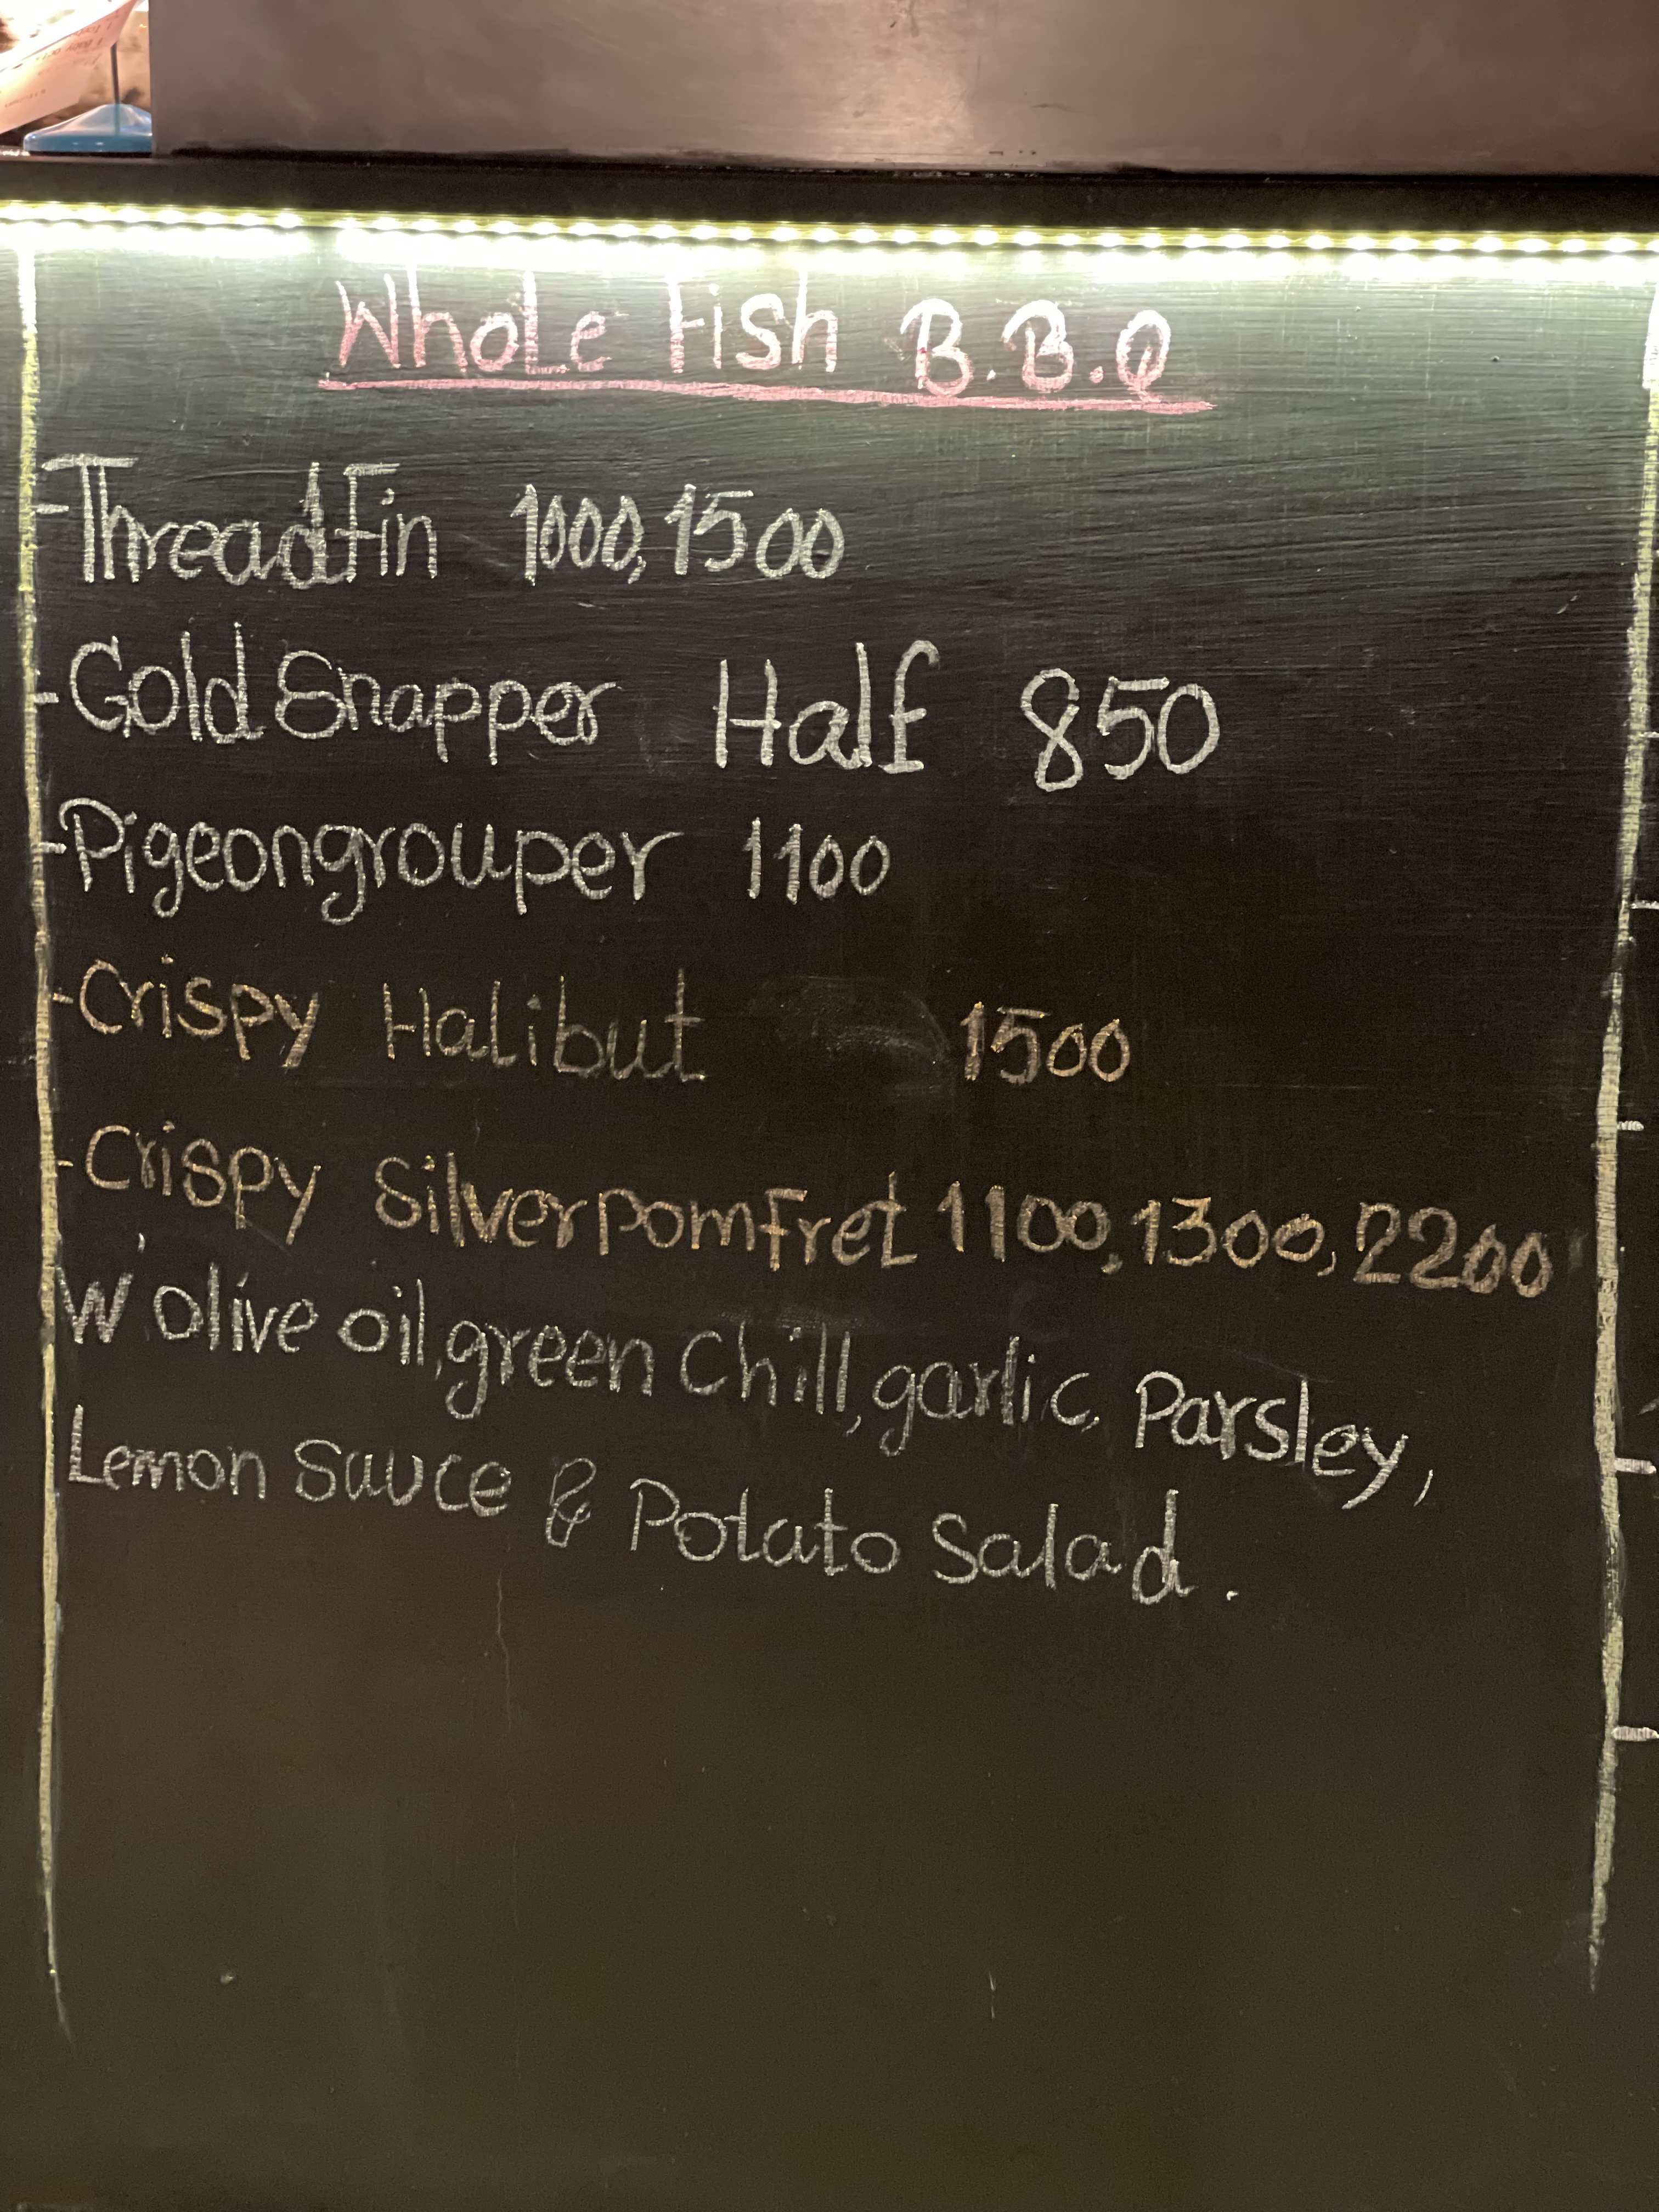 Whole Fish B.B.Q
-ThreadFin 1000,1500
-Gold Snapper Half 850
-Pigeongrouper 1100
-Crispy Halibut 1500
-Crispy Silverpomfret 1100,1300,2200
W' olive oil,green Chill,garlic, Parsley,
Lemon Sauce & Potato Salad.